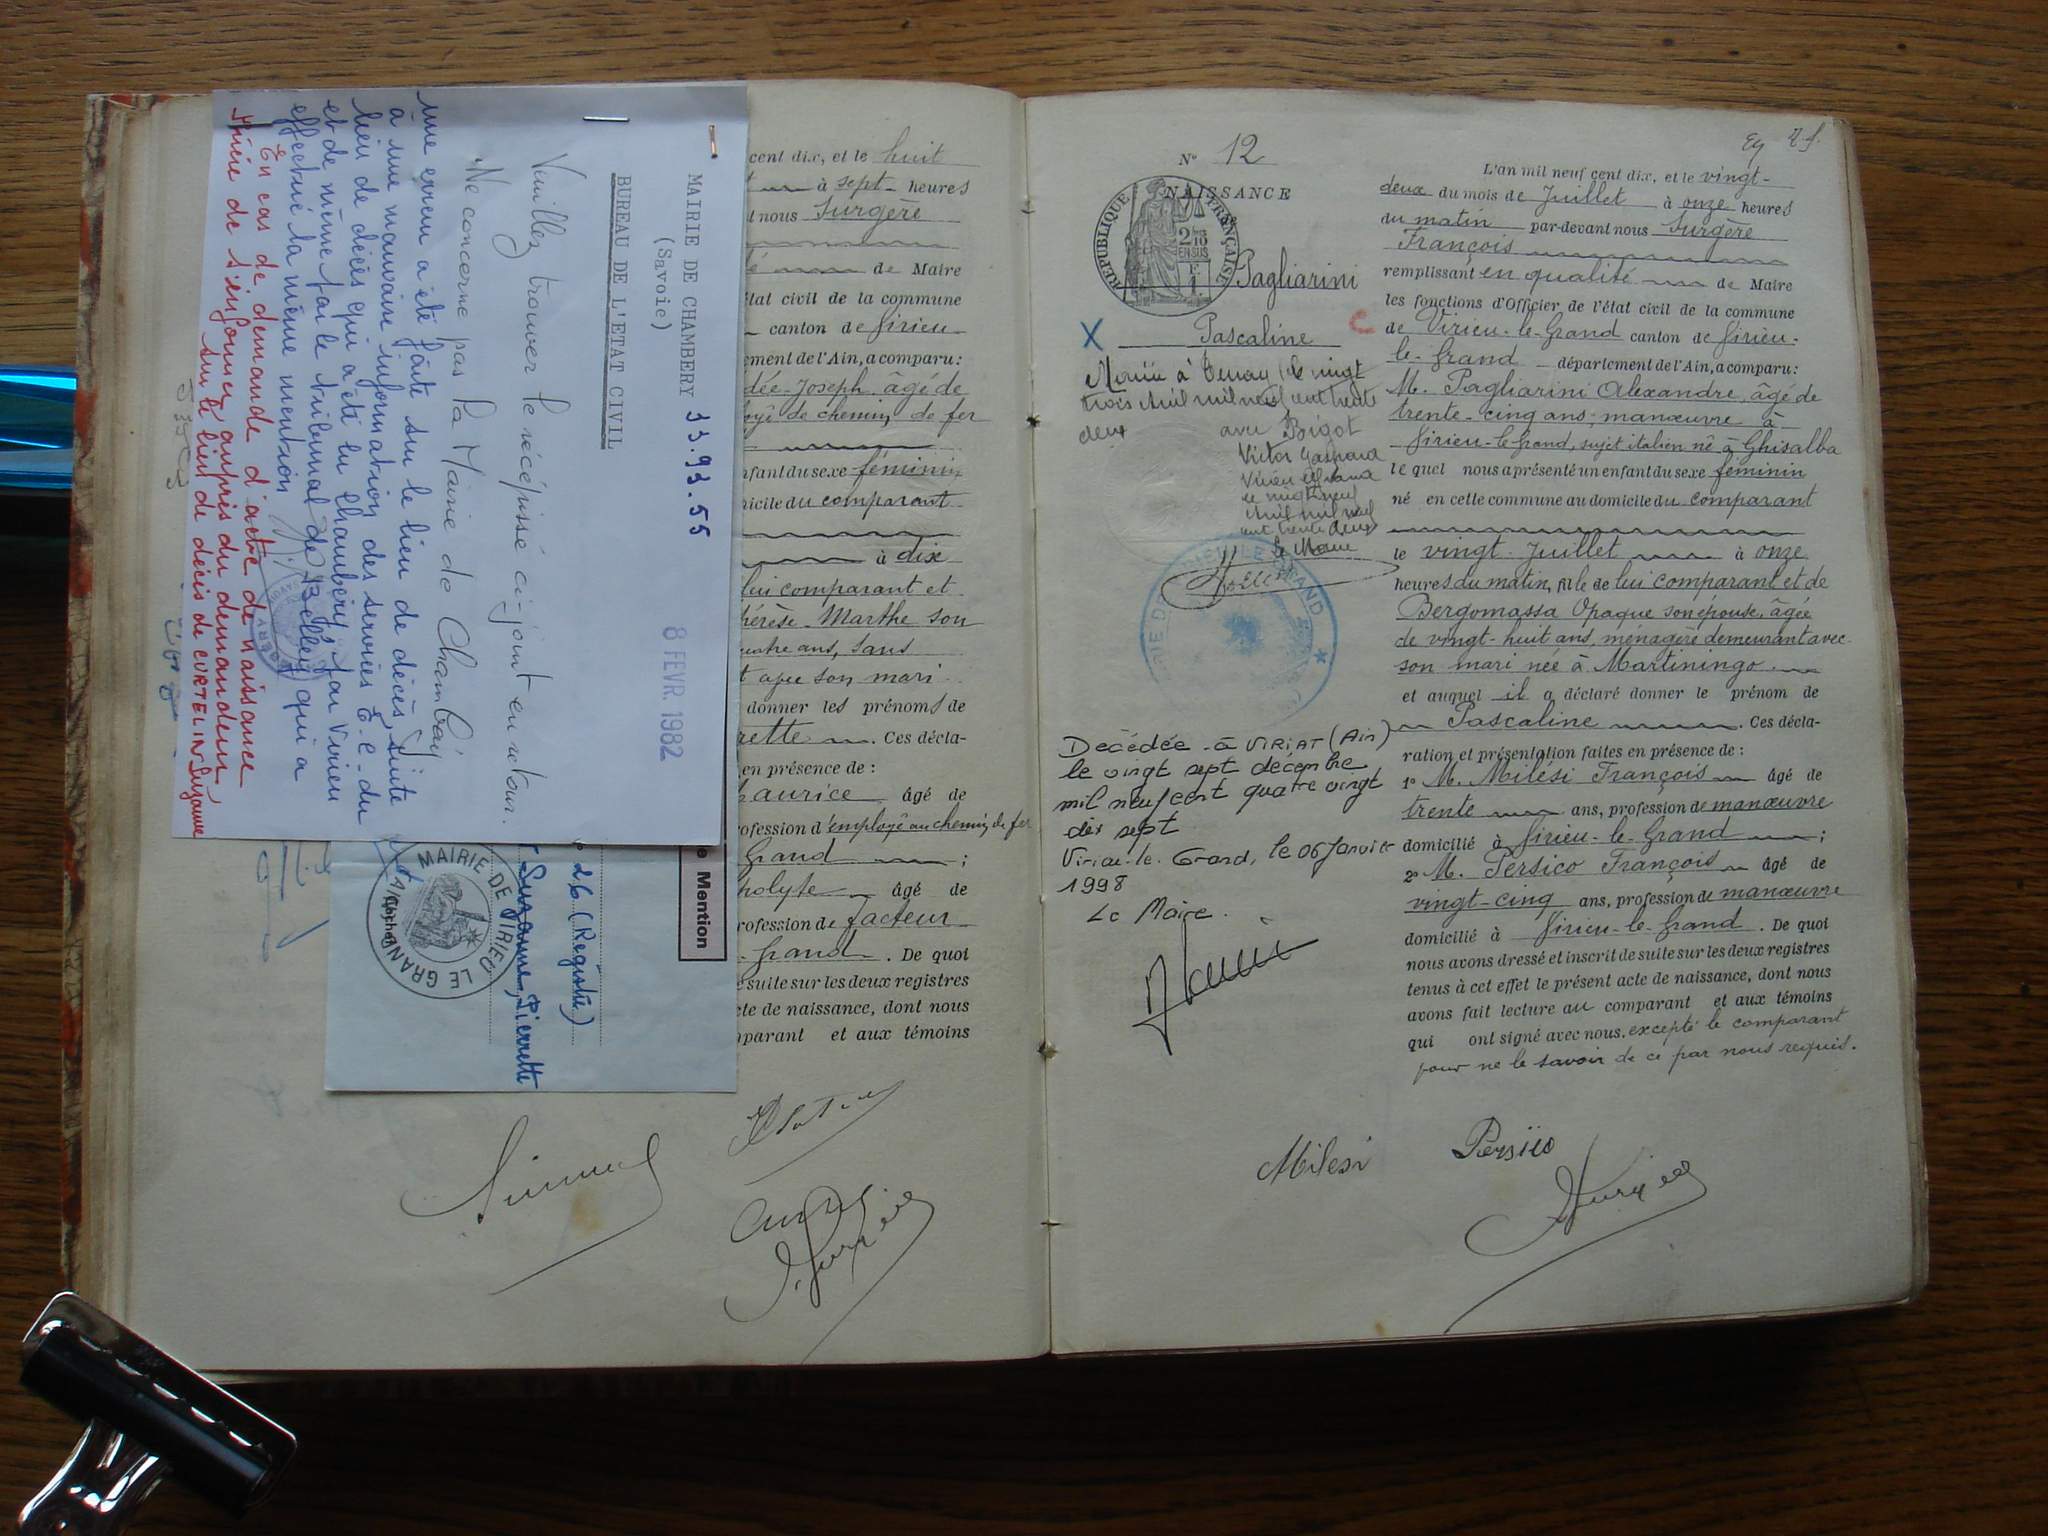 MAIRIE DE CHAMBERY 33.93.55
(Savoie)
BUREAU DE L'ETAT CIVIL
8 FEVR. 1982
Veuillez trouver le récépissé ci-joint en retour.
Ne concerne pas la Mairie de Chambéry
Une erreur a été faite sur le lieu de décès, suite
à une mauvaise information des services E.C. du
lieu de décès qui a été lu Chambéry, par Virieu
et de même par le tribunal de Belley qui a
effectué la même mention
En cas de demande d'acte de naissance
prière de s'informer auprès du demandeur
sur le lieu de décès de CURTELIN Suzanne
Mention
26 (Registre)
Suzanne, Pierrette
MAIRIE DE VIRIEU LE GRAND
cent dix, et le huit
à sept heures
nous Surgère
de Maire
état civil de la commune
canton de Virieu
ement de l'Ain, a comparu :
dée-Joseph âgé de
oyé de chemin de fer
enfant du sexe féminin
icile du comparant
à dix
lui comparant et
hérèse Marthe son
quatre ans, sans
avec son mari
donner les prénoms de
rette. Ces décla-
en présence de :
aurice âgé de
rofession d'employé au chemin de fer
Grand ;
polyte âgé de
rofession de facteur
Grand. De quoi
suite sur les deux registres
cte de naissance, dont nous
parant et aux témoins
N° 12
NAISSANCE
RÉPUBLIQUE FRANÇAISE
2/10
EN SUS
Pagliarini
Pascaline
X
C
Mariée à Tenay, le vingt
trois Avril mil neuf cent trente
deux avec Bigot
Victor Gaspard
Virieu le Grand
le vingt neuf
Avril mil neuf
cent trente deux
le Maire
Décédée à VIRIAT (Ain)
le vingt sept décembre
mil neuf cent quatre vingt
dix sept
Virieu-le-Grand, le 06 Janvier
1998
Le Maire.
L'an mil neuf cent dix, et le vingt-
deux du mois de Juillet à onze heures
du matin par-devant nous Surgère
François
remplissant en qualité de Maire
les fonctions d'Officier de l'état civil de la commune
de Virieu-le-Grand canton de Virieu-
le-Grand département de l'Ain, a comparu :
M. Pagliarini Alexandre, âgé de
trente-cinq ans, manœuvre à
Virieu-le-Grand, sujet italien né à Ghisalba
lequel nous a présenté un enfant du sexe féminin
né en cette commune au domicile du comparant
le vingt Juillet à onze
heures du matin, fille de lui comparant et de
Bergomassa Opaque son épouse, âgée
de vingt-huit ans, ménagère demeurant avec
son mari née à Martiningo.
et auquel il a déclaré donner le prénom de
Pascaline. Ces décla-
ration et présentation faites en présence de :
1° M. Milési François âgé de
trente ans, profession de manœuvre
domicilié à Virieu-le-Grand ;
2° M. Persico François âgé de
vingt-cinq ans, profession de manœuvre
domicilié à Virieu-le-Grand. De quoi
nous avons dressé et inscrit de suite sur les deux registres
tenus à cet effet le présent acte de naissance, dont nous
avons fait lecture au comparant et aux témoins
qui ont signé avec nous. excepté le comparant
pour ne le savoir de ce par nous requis.
Milesi Persico
Surgère